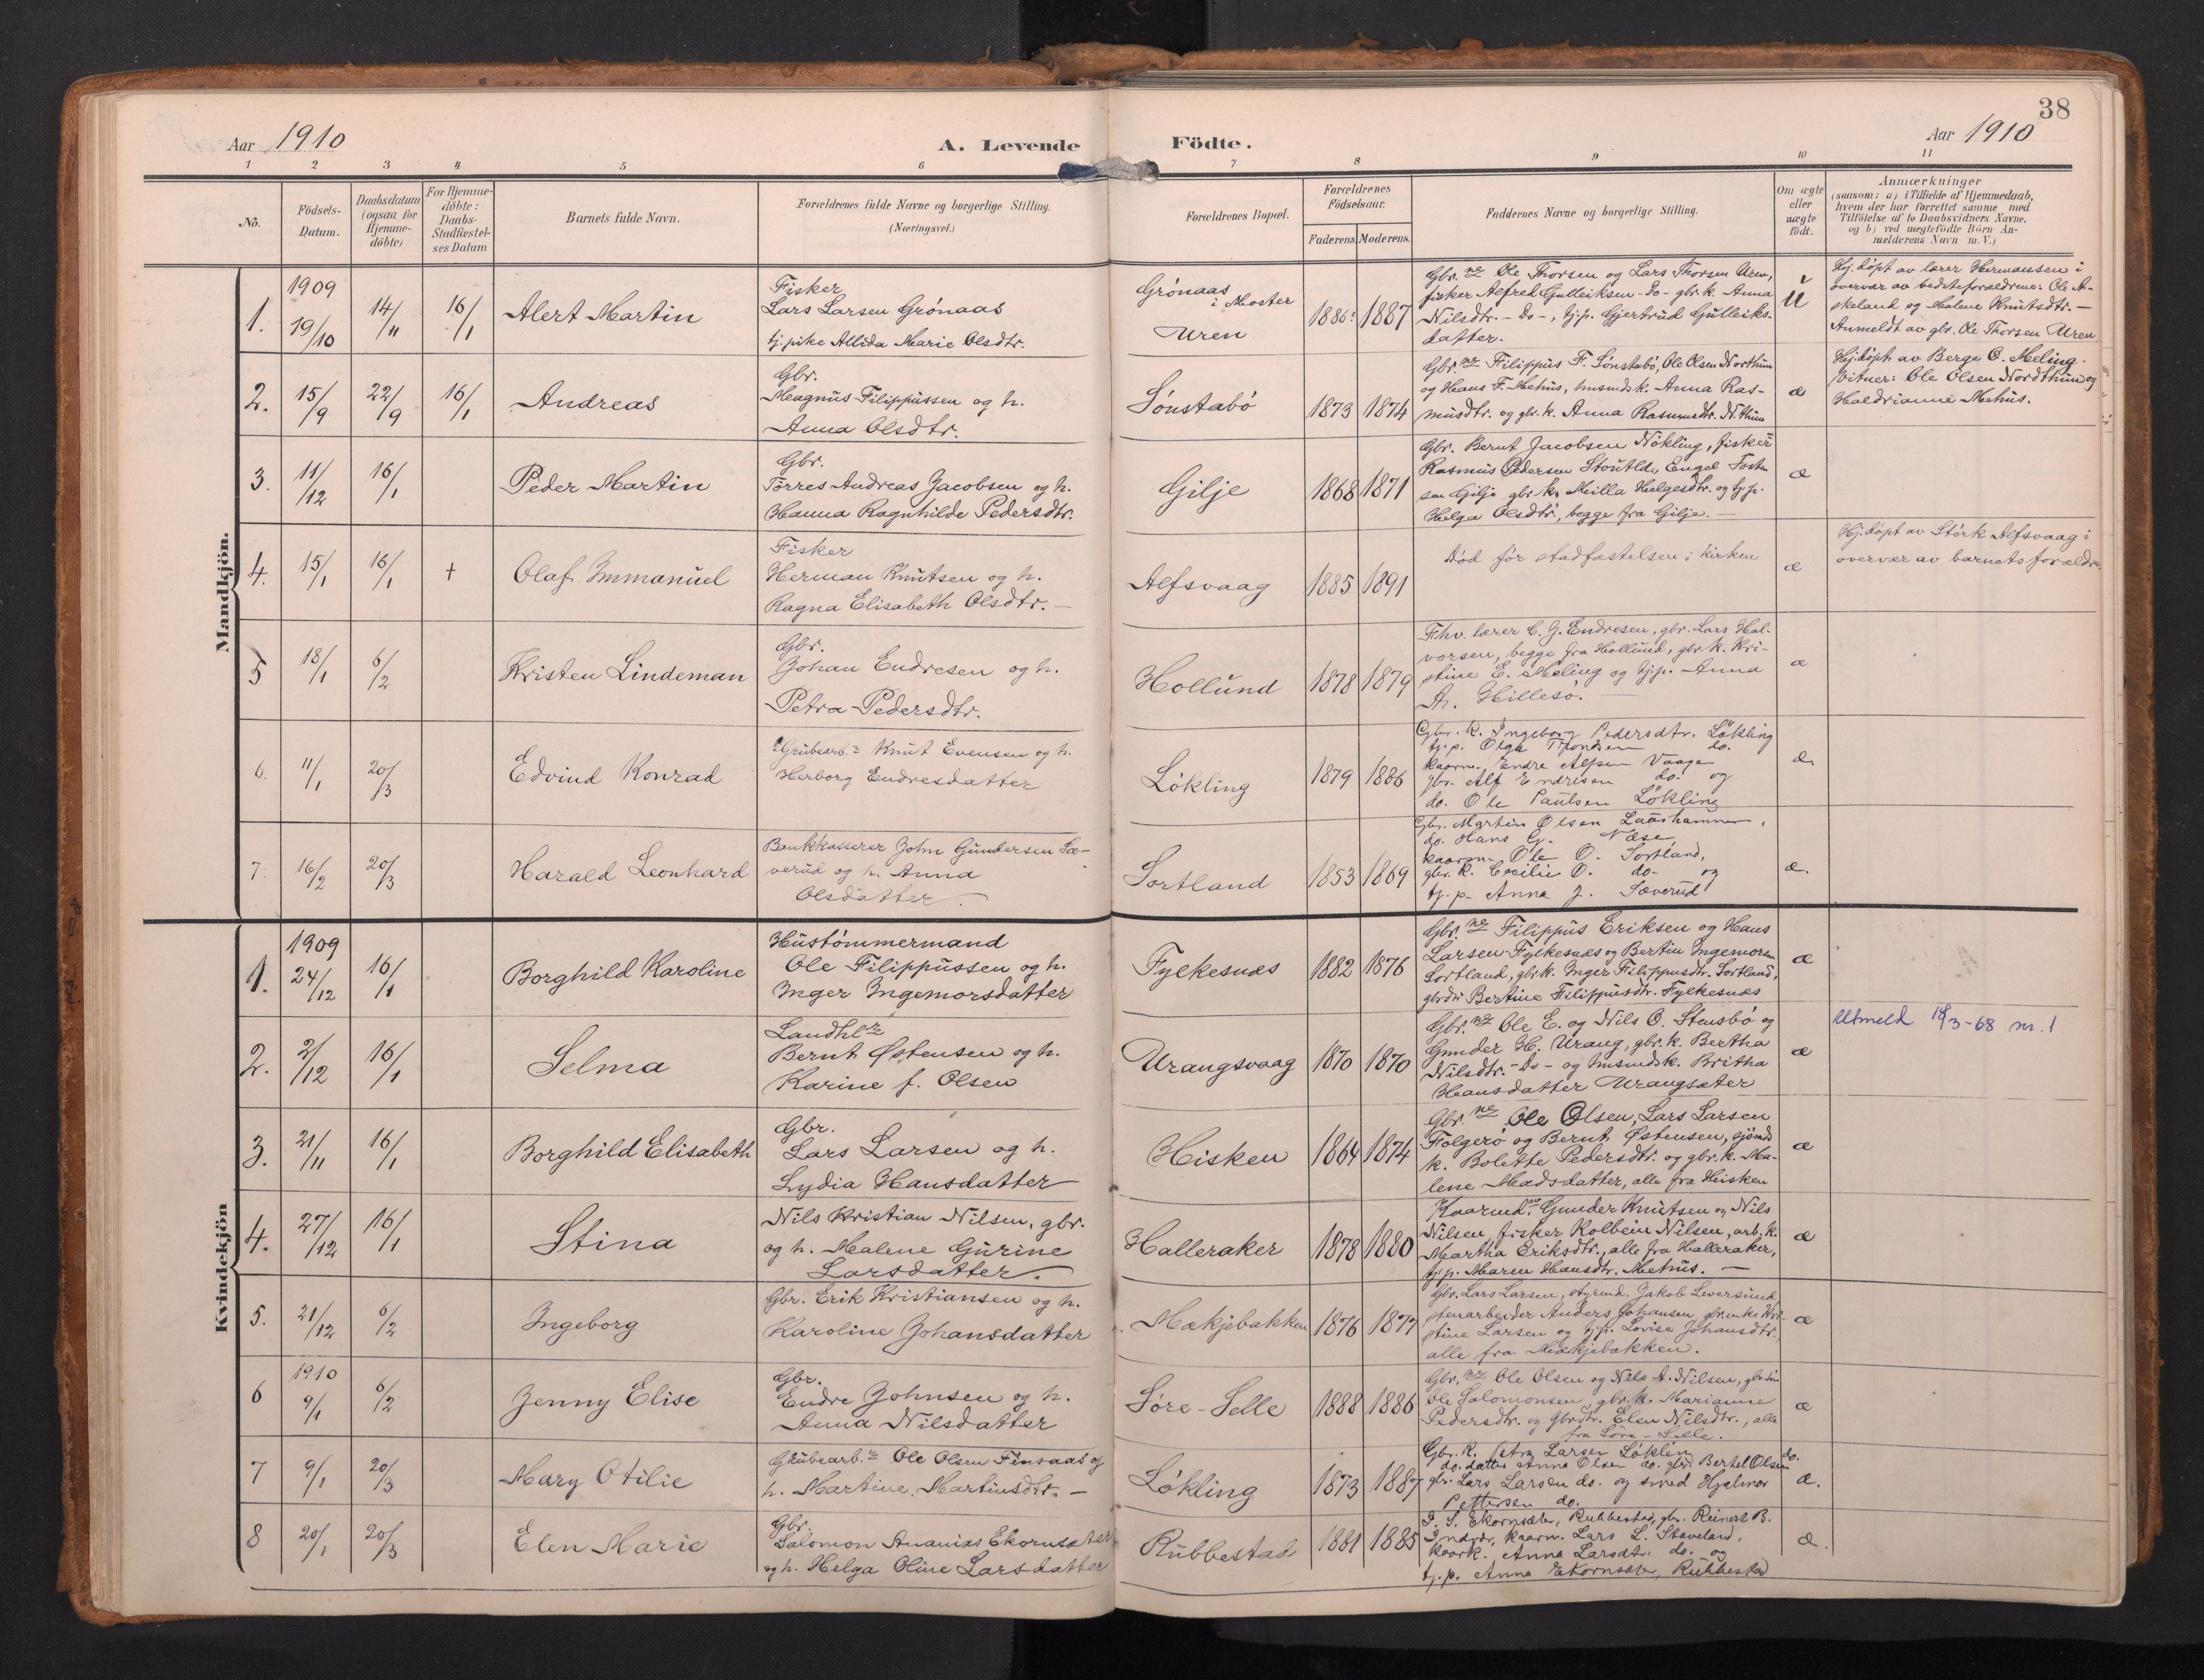 38
Aar 1910
A. Levende
Födte.
Aar 1910
1
2
3
4
5
6
7
8
9
10
11
No.
Födsels-
Datum.
Daabsdatum
(ogsaa for
Hjemme-
döbte)
For Hjemme-
döbte:
Daabs-
Stadfæstel-
ses Datum
Barnets fulde Navn.
Forældrenes fulde Navne og borgerlige Stilling.
(Næringsvei.)
Forældrenes Bopæl.
Forældrenes
Födselsaar.
Faderens.
Moderens.
Faddernes Navne og borgerlige Stilling.
Om ægte
eller
uægte
födt.
Anmærkninger
(saasom: a) i Tilfælde af Hjemmedaab,
hvem der har forrettet samme med
Tilföielse af to Daabsvidners Navne.
og b) ved uægtefödte Börn An-
melderens Navn m. V.)
Mandkjön.
1.
1909
19/10
14/11
16/1
Alert Martin
Fisker
Lars Larsen Grönaas
tj.pike Allida Marie Olsdtr.
Grönaas
i Moster
Uren
1886
1887
Gbr. ne Ole Thorsen og Lars Thorsen Uren,
fisker Alfred Gulleiksen - Do - gbr.k. Anna
Nilsdtr. - Do -, tj.p. Gjertrud Gulleiks-
datter.
u
Hj.døpt av lærer Hermansen i
overvær av bedsteforældrene: Ole A-
skeland og Malene Knutsdtr. -
Anmeldt av gbr. Ole Thorsen Uren
2.
15/9
22/9
16/1
Andreas
Gbr.
Magnus Filippussen og h.
Anna Olsdtr.
Sønstabø
1873
1874
Gbr. ne Filippus F. Sønstabø, Ole Olsen Northun
og Hans F. Mehus, husmdsk. Anna Ras-
musdtr. og gbr. k. Anna Rasmusdtr. N.thun
æ
Hj.døpt av Berge O. Meling.
Vitner: Ole Olsen Nordthun og
Haldrianne Mehus.
3.
11/12
16/1
Peder Martin
Gbr.
Torres Andreas Jacobsen og h.
Hanna Ragnhilde Pedersdtr.
Gilje
1868
1871
Gbr. Bernt Jacobsen Nökling, fisker
Rasmus Pedersen Engel
sen Gilje gbr.k. Milla Helgesdtr. og tj.p.
Helga Olsdtr., begge fra Gilje. -
æ
4.
15/1
16/1
+
Olaf Immanuel
Fisker
Herman Knutsen og h.
Ragna Elisabeth Olsdtr. -
Alfsvaag
1885
1891
Død før stadfæstelsen i kirken
æ
Hj.døpt av Störk Alfsvaag i
overvær av barnets forældre.
5
18/1
6/2
Kristen Lindeman
Gbr.
Johan Endresen og h.
Petra Pedersdtr.
Hollund
1878
1879
F.hv. lærer C. G. Endresen, gbr. Lars Hal-
vorsen, begge fra Hollund, gbr. k. Kri-
stine E. Meling og tj.p. Anna
A. Hillesø. -
æ
6.
11/1
20/3
Edvind Konrad
Grubearb. Knut Evensen og h.
Herborg Endresdatter
Løkling
1879
1886
Gbr. k. Ingeborg Pedersdtr. Løkling
tj.p. Olga do.
kaarm. Endre Alfsen Vaage
gbr. Alf Endresen do. og
do. Ole Paulsen Løkling
æ
7.
16/2
20/3
Harald Leonhard
Bankkasserer John Gundersen Sæ-
verud og h. Anna
Olsdatter.
Sortland
1853
1869
Gbr. Martin Olsen Laashammer,
do. Hans G. Næse,
kaarm. Ole O. Sortland,
gbr. k. Cecilie O. do. og
tj.p. Anna J. Sæverud
æ.
Kvindekjön
1.
1909
24/12
16/1
Borghild Karoline
Hustømmermand
Ole Filippussen og h.
Inger Ingemorsdatter
Fylkesnæs
1882
1876
Gbr. ne Filippus Eriksen og Hans
Larsen Fylkesnæs og Bertin Ingemorsen
Sortland, gbr.k. Inger Filippusdtr. Sortland,
gbrdtr. Bertine Filippusdtr. Fylkesnæs
æ
2.
2/12
16/1
Selma
Landhl.
Bernt Østensen og h.
Karine f. Olsen
Urangsvaag
1870
1870
Gbr. ne Ole E. og Nils O. Stensbø og
Gunder H. Urang, gbr. k. Bertha
Nilsdtr. - Do - og husmdsk. Britha
Hansdatter Urangsæter
æ
Utmeld 18/3-68 nr. 1
3.
21/11
16/1
Borghild Elisabeth
Gbr.
Lars Larsen og h.
Lydia Hansdatter
Hisken
1864
1874
Gbr. ne Ole Olsen, Lars Larsen
Folgerø og Bernt Østensen, sjømds
k. Bolette Pedersdtr. og gbr. k. Ma-
lene Madsdatter, alle fra Hisken
æ
4.
27/12
16/1
Stina
Nils Kristian Nilsen, gbr.
og h. Malene Gurine
Larsdatter.
Halleraker
1878
1880
Kaarmd. ne Gunder Knutsen og Nils
Nilsen, fisker Kolbein Nilsen, arb. k.
Martha Eriksdtr., alle fra Halleraker,
tj.p. Maren Hansdtr. Mehus. -
æ
5.
21/12
6/2
Ingeborg
Gbr. Erik Kristiansen og h.
Karoline Johansdatter
Mækjebakken
1876
1877
Gbr. Lars Larsen, styrmd. Jakob Leversund
stenarbeider Anders Johansen, gbr.enke Kri-
stine Larsen og tj.p. Lovise Johansdtr.,
alle fra Mækjebakken.
æ
6
1910
9/1
6/2
Jenny Elise
Gbr.
Endre Johnsen og h.
Anna Nilsdatter
Søre-Selle
1888
1886
Gbr. ne Ole Olsen og Nils A. Nilsen, gbr.søn
Ole Salomonsen, gbr. k. Marianne
Pedersdtr. og Gbrdtr. Elen Nilsdtr., alle
fra Søre-Selle.
æ
7
9/1
20/3
Mary Otilie
Grubearb. Ole Olsen Finsaas og
h. Martine Martinsdtr. -
Løkling
1873
1887
Gbr. k. Petra Larsen Løkling
do. datter Anna Olsen do. gbr. Bertel Olsen do.
gbr. Lars Larsen do. og smed Hjalmar
Pettersen do.
æ.
8
20/1
20/3
Elen Marie
Gbr.
Salomon Ananias Ekornsæter
og h. Helga Oline Larsdatter
Rubbestad
1881
1885
I. S. Ekornsæter, Rubbestad, gbr. Reinert B.
kaarm. Lars L. Staveland,
kaark. Anna Larsdtr. do. og
tj.p. Anna Ekornsæter, Rubbestad
æ.